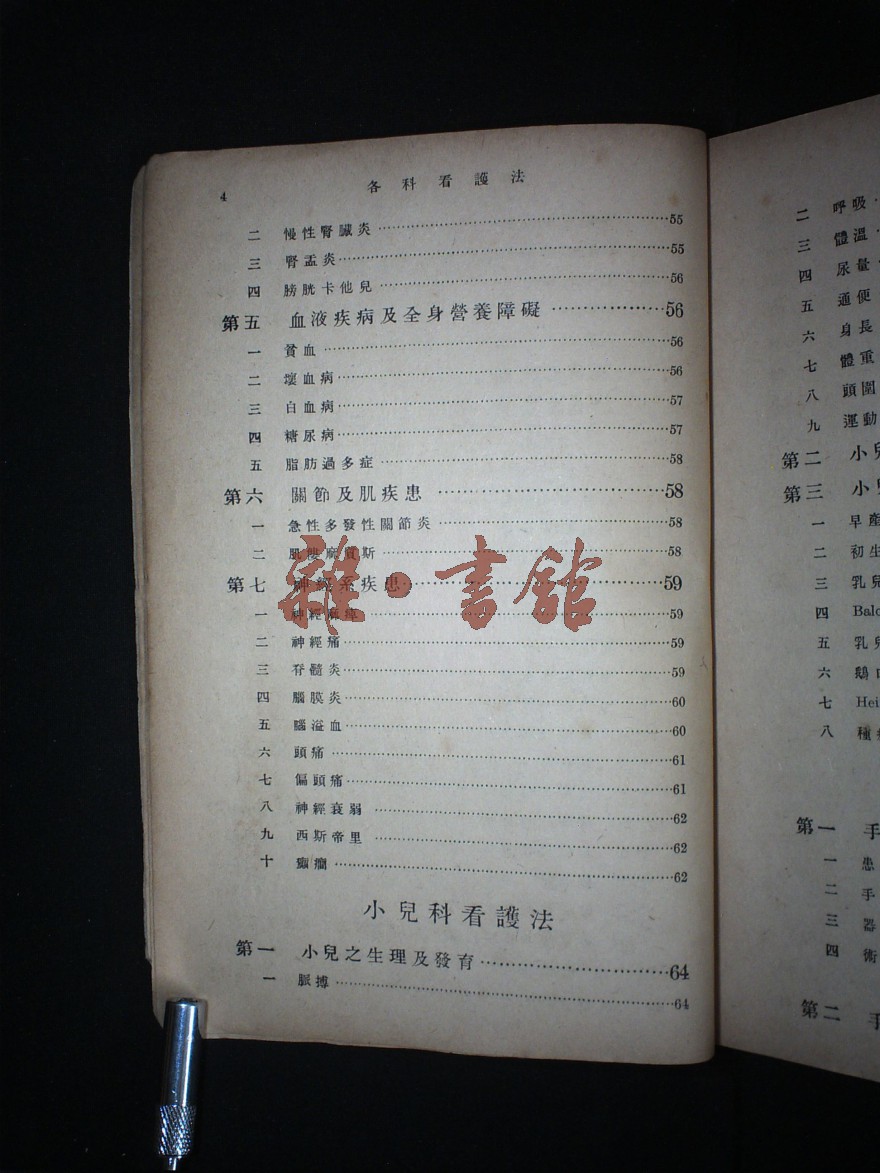 4 各科看護法
二 慢性腎臟炎 55
三 腎盂炎 55
四 膀胱卡他兒 56
第五 血液疾病及全身營養障礙 56
一 貧血 56
二 壞血病 56
三 白血病 57
四 糖尿病 57
五 脂肪過多症 58
第六 關節及肌疾患 58
一 急性多發性關節炎 58
二 肌僂麻質斯 58
第七 神經系疾患 59
一 神經麻痺 59
二 神經痛 59
三 脊髓炎 59
四 腦膜炎 60
五 腦溢血 60
六 頭痛 61
七 偏頭痛 61
八 神經衰弱 62
九 西斯帝里 62
十 癲癇 62
小兒科看護法
第一 小兒之生理及發育 64
一 脈搏 64
雜·書館
二 呼吸
三 體溫
四 尿量
五 通便
六 身長
七 體重
八 頭圍
九 運動
第二 小兒
第三 小
一 早產
二 初生
三 乳兒
四
五 乳兒
六 鵝口
七
八 種
第一 手
一 患
二 手
三 器
四 術
第二 手